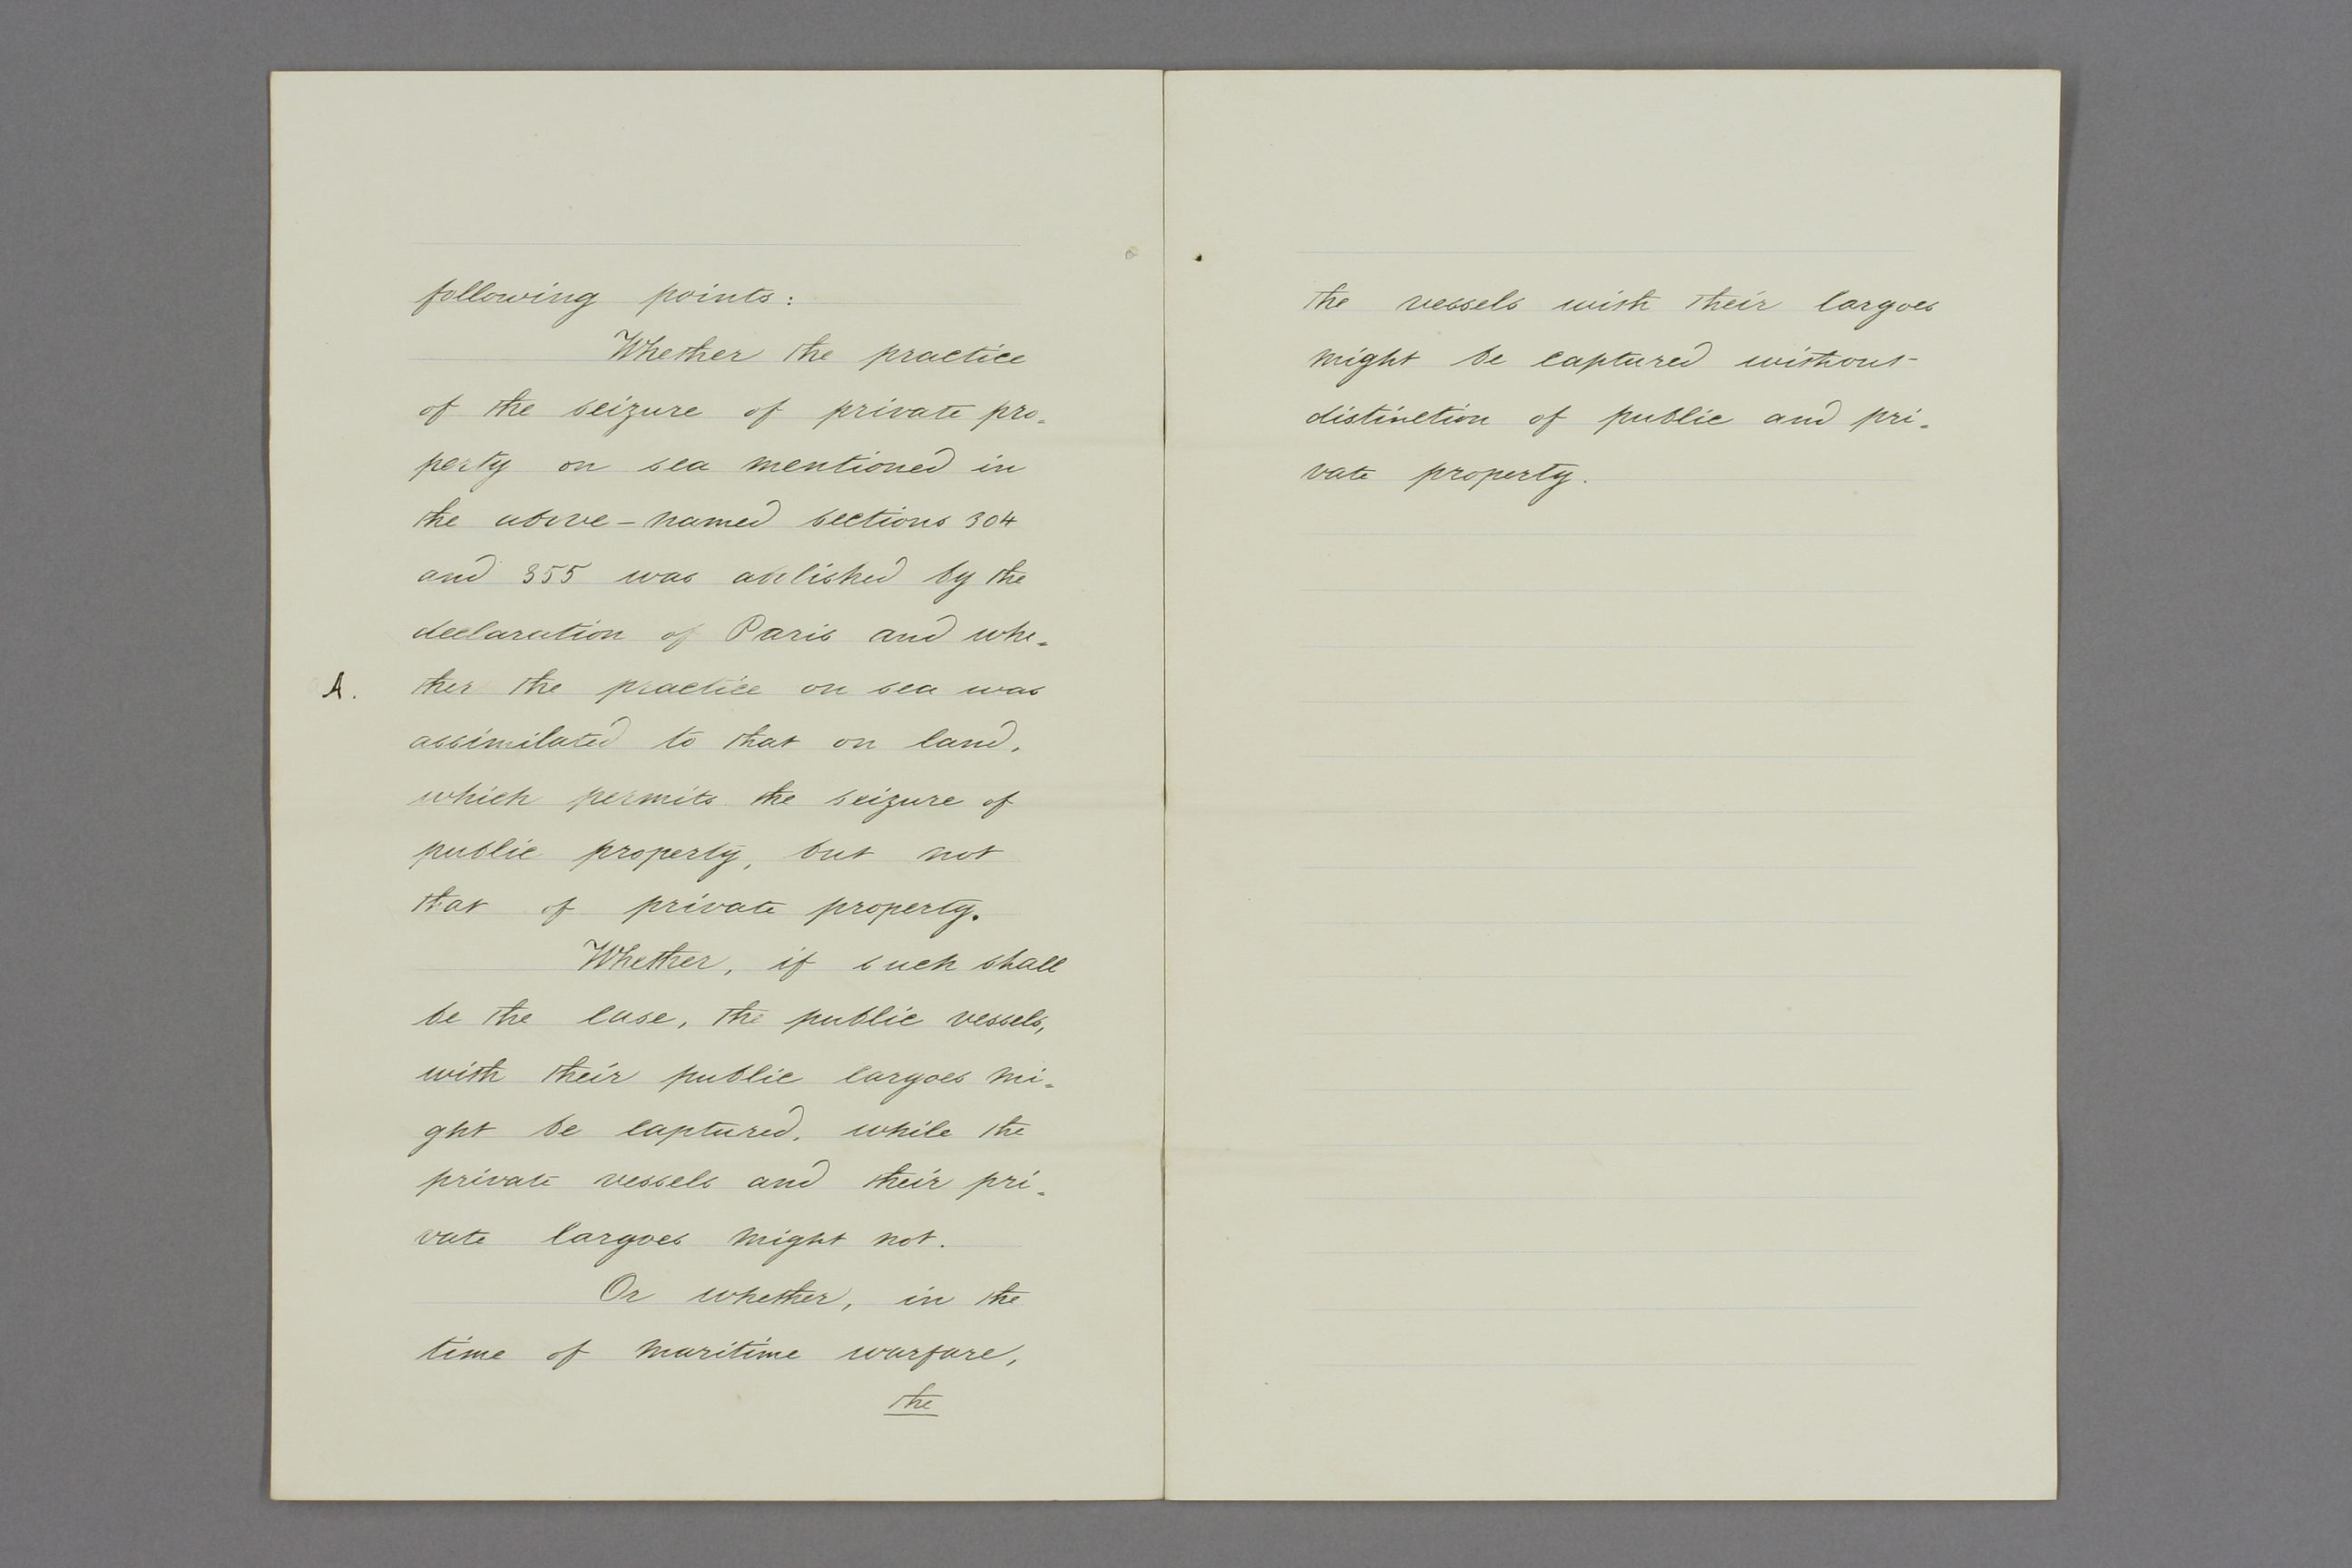 following points:
Whether the practice
of the seizure of private pro=
perty on sea mentioned in
the above-named sections 304
and 355 was abolished by the
declaration of Paris and whe=
A. ther the practice on sea was
assimilated to that on land,
which permits the seizure of
public property, but not
that of private property.
Whether, if such shall
be the case, the public vessels,
with their public cargoes mi=
ght be captured, while the
private vessels and their pri=
vate cargoes might not.
Or whether, in the
time of maritime warfare,
the
the vessels with their cargoes
might be captured without
distinction of public and pri=
vate property.